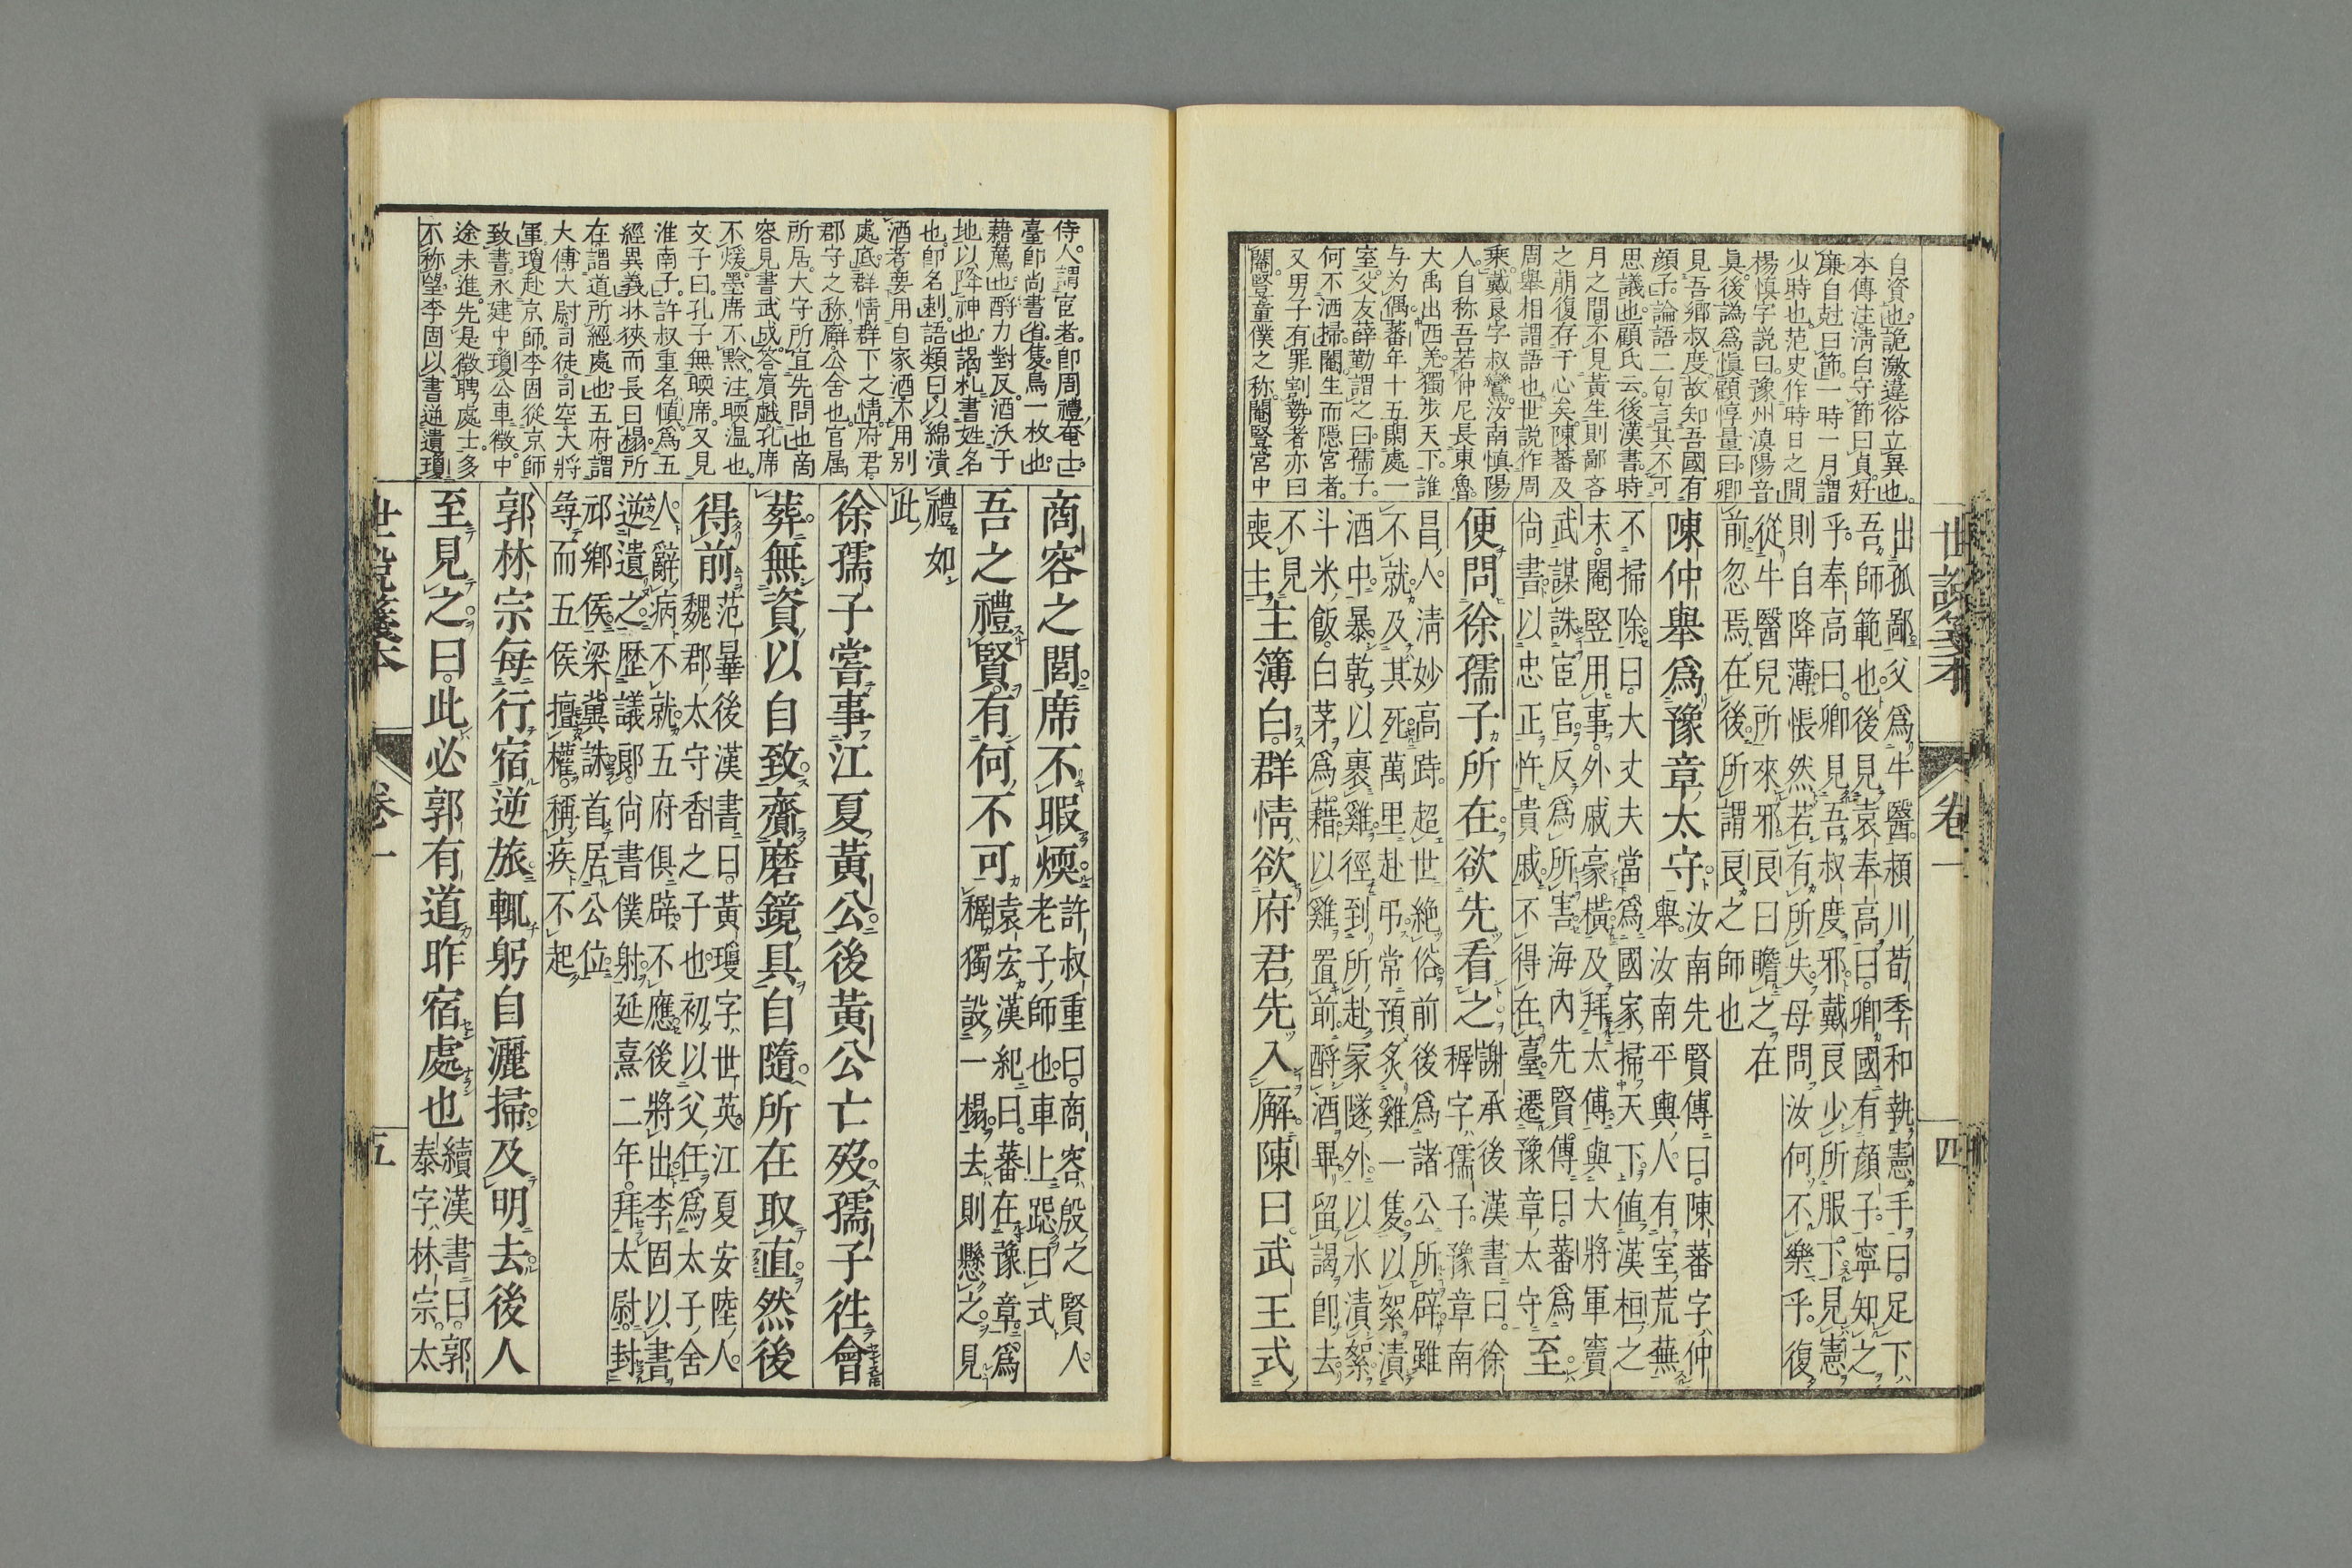 自資也。詭激違俗立異也。
本傳注清白守節曰貞。好
廉自尅曰節。一時一月。謂
少時也。范史作時日之間
楊愼字説曰。豫州滇陽音
眞。後譌爲愼。顧惇量曰。卿
見吾鄉叔度。故知吾國有
顔子。論語二句。言其不可
思議也。顧氏云。後漢書。時
月之間不見黃生則鄙吝
之萠復存于心矣。陳蕃及
周舉相謂語也。世説作周
乘。戴良字叔鸞。汝南愼陽
人。自称吾若仲尼長東魯。
大禹出西羌。獨步天下。誰
与为偶。蕃年十五閑處一
室。父友薛勤謂之曰。孺子。
何不洒掃。閹生而隱宮者。
又男子有罪割勢者亦曰
閹。豎童僕之称。閹豎宮中
世説箋本
卷一
四
出孤鄙父爲牛醫。頴川荀季和執憲手曰。足下
吾師範也。後見袁奉高曰。卿國有顔子。寧知之
乎。奉高曰。卿見吾叔度邪。戴良少所服下。見憲
則自降薄。悵然若有所失。母問。汝何不樂乎。復
從牛醫兒所來邪。良曰瞻之在
前。忽焉在後。所謂良之師也
陳仲舉爲豫章太守。
汝南先賢傳曰。陳蕃字仲
舉。汝南平輿人。有室荒蕪
不掃除。曰。大丈夫當爲國家掃天下。値漢桓之
末。閹竪用事。外戚豪橫。及拜太傅。與大將軍竇
武謀誅宦官。反爲所害。
海內先賢傳曰。蕃爲
尚書以忠正忤貴戚。不得在臺遷豫章太守
至
便問徐孺子所在。欲先看之
謝承後漢書曰。徐
穉字孺子。豫章南
昌人。淸妙高跱。超世絕俗。前後爲諸公所辟。雖
不就。及其死萬里赴弔。常預炙雞一隻。以絮漬
酒中。暴乾以裹雞。徑到所赴冢隧外。以水漬絮。
斗米飯。白茅爲藉。以雞置前。酹酒畢。留謁即去。
不見
喪主
主簿白群情欲府君先入廨。陳曰。武王式
商容之閭。席不暇煗。
許叔重曰。商容。殷之賢人
老子師也。車上跽曰式
吾之禮賢。有何不可。
袁宏漢紀曰。蕃在豫章。爲
穉獨設一榻。去則懸之。見
禮如
此
徐孺子嘗事江夏黃公。後黃公亡歿。孺子往會
葬。無資以自致。齎磨鏡具自隨。所在取直。然後
得前
范曄後漢書曰。黃瓊字世英。江夏安陸人。
魏郡太守香之子也。初以父任爲太子舍
人。辭病不就。五府俱辟。不應。後將出。李固以書
逆遺之。歷議郞。尚書僕射。延熹二年。拜太尉。封
邟鄉侯。梁冀誅。首居公位。
尋而五侯擅權。稱疾不起
郭林宗每行宿逆旅。輒躬自灑掃。及明去。後人
至見之曰。此必郭有道昨宿處也
續漢書曰。郭
泰字林宗。太
侍。人謂宦者。卽周禮奄士。
臺卽尚書省。隻鳥一枚也。
藉薦也。酹力對反。酒沃于
地以降神也。謁札。書姓名
也。卽名刺。語類曰。以綿漬
酒者。要用自家酒。不用別
處底。群情。群下之情。府君
郡守之称。廨公舍也。官属
所居。大守所宜先問也。商
容見書武成。答賓戲。孔席
不煖。墨席不黔。注暖温也。
文子曰。孔子無暖席。又見
淮南子。許叔重名愼。爲五
經異義。牀狹而長曰榻。所
在謂道所經處也。五府謂
大傅大尉。司徒。司空。大將
軍。瓊赴京師。李固從京師
致書。永建中。瓊公車徵。中
途未進。先是徵聘處士。多
不称望。李固以書逆遺瓊
世説箋本
卷一
五